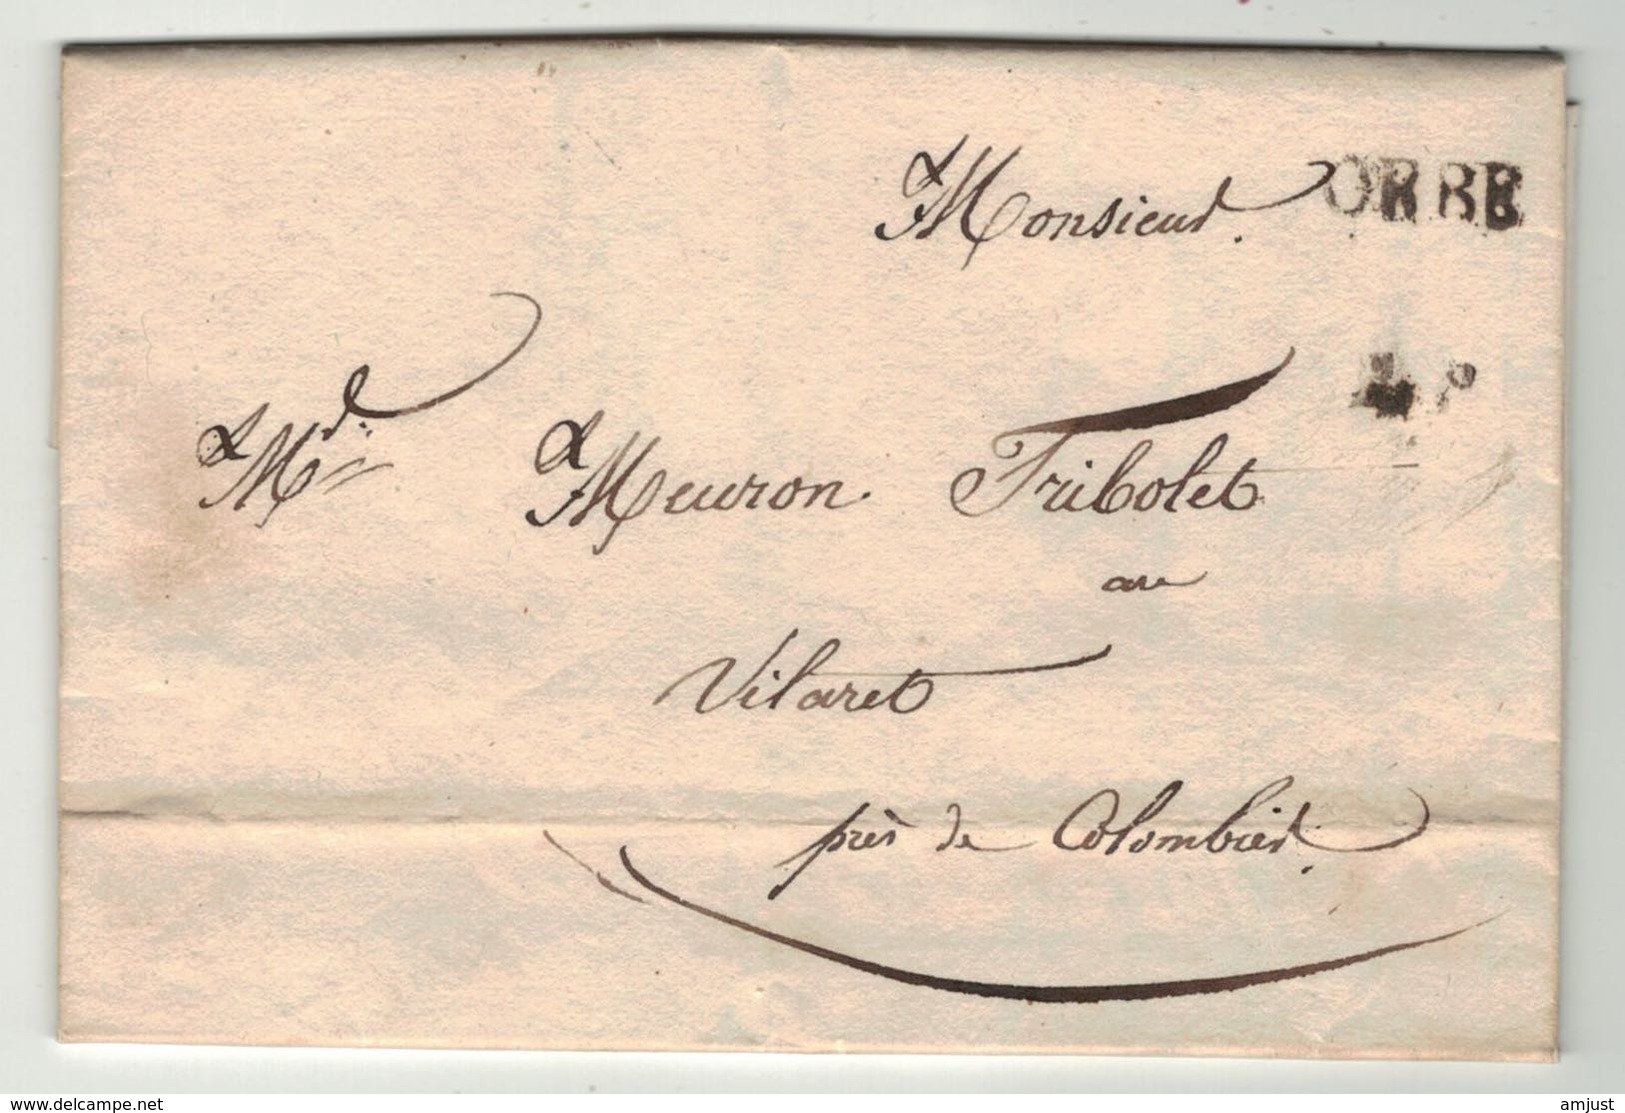 Monsieur.
ORBE
Md. Meuron. Tribolet
au
Vilaret
près de Colombier.
www.delcampe.net
amjust